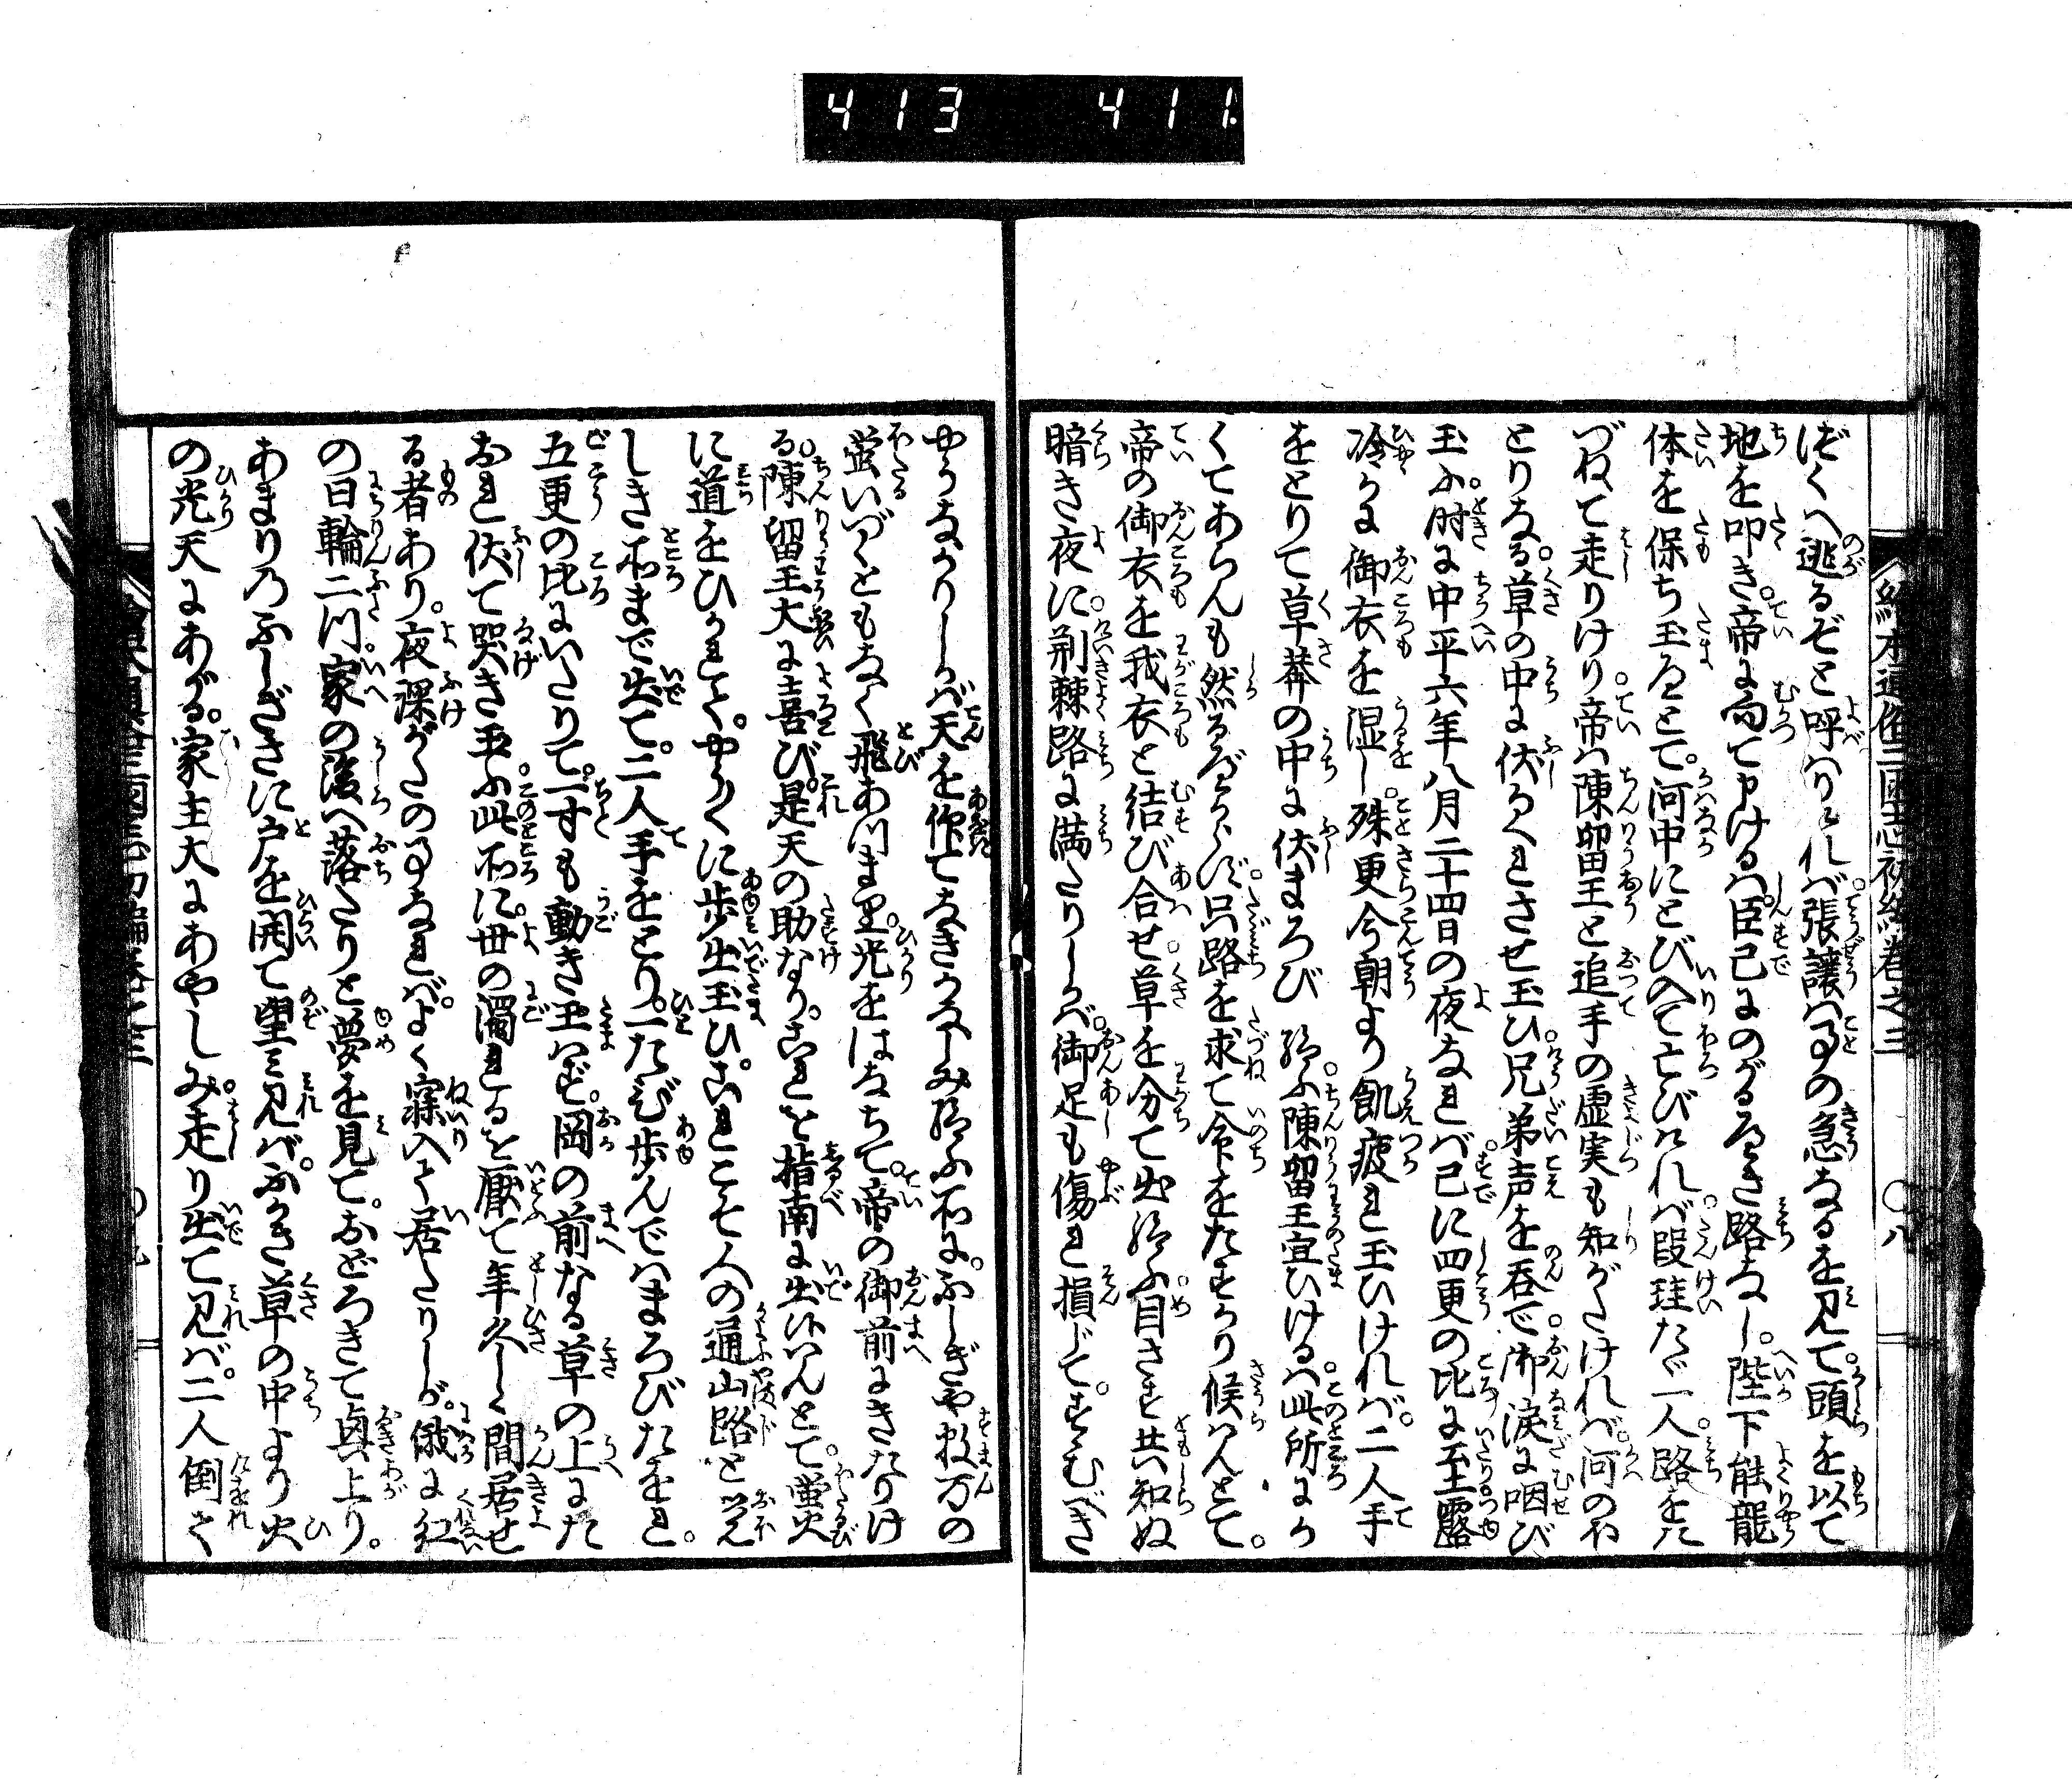 413 411.
繪本通俗三國志初編巻之三 〇八
づくへ逃るぞと呼はりければ張讓は事の急なるを見て。頭を以て
地を叩き。帝に向て申けるは臣已にのがるべき路なし。陛下能龍
体を保ち玉へとて。河中にとび入て亡びければ。段珪たゞ一人路をた
づねて走りけり。帝は陳畄王と追手の虚実も知がたければ。河のほ
とりなる。草の中に伏かくれさせ玉ひ。兄弟声を呑で。御涙に咽び
玉ふ。時に中平六年八月二十四日の夜なれば。已に四更の比に至露
冷かに御衣を湿し。殊更今朝より飢疲れ玉ひければ。二人手
をとりて草莽の中に伏まろび給ふ。陳留王宣ひけるは。此所にか
くてあらんも然るべからず。只路を求て命をたすかり候はんとて。
帝の御衣を我衣と結び合せ。草を分て出給ふ。目さすとも知ぬ
暗き夜に。荊棘路に満たりしかば。御足も傷れ損じて。すゝむべき
やうなかりしかば天を仰てなきかなしみ給ふ所に。ふしぎや数万の
蛍いづくともなく飛あつまり。光をはなちて。帝の御前にきたりけ
る。陳留王大に喜び。是天の助なり。これを指南に出候はんとて。蛍火
に道をひかれて。やうやくに歩出玉ひ。これこそ人の通山路と覚
しき所まで出て。二人手をとり。一たび歩んではまろびたをれ。
五更の比にいたりて。一寸も動き玉はず。岡の前なる草の上にた
おれ伏て哭き玉ふ。此所に。世の濁れるを厭て年久しく間居せ
る者あり。夜深がたの事なれば。よく寐入て居たりしが。俄に紅
の日輪二つ。家の後へ落たりと夢を見て。おどろきて奥上り。
あまりのふしぎさに戸を開て望み見れば。ふかき草の中より火
の光天にあがる。家主大にあやしみ。走り出て見れば。二人倒て